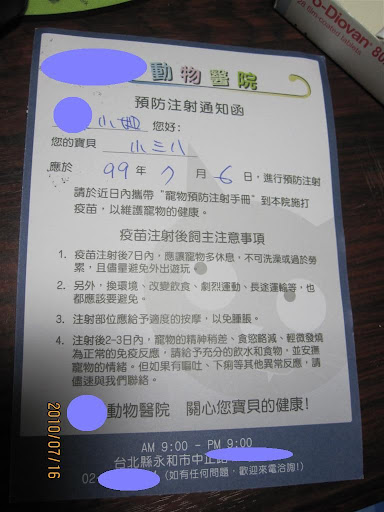 o-Diovan® 80
film-coated tablets
動物醫院
預防注射通知函
小姐 您好:
您的寶貝 小三八
應於 99 年 7 月 6 日,進行預防注射
請於近日內攜帶“寵物預防注射手冊”到本院施打
疫苗,以維護寵物的健康。
疫苗注射後飼主注意事項
1. 疫苗注射後7日內,應讓寵物多休息,不可洗澡或過於勞
累,且儘量避免外出遊玩。
2. 另外,換環境、改變飲食、劇烈運動、長途運輸等,也
都應該要避免。
3. 注射部位應給予適度的按摩,以免腫脹。
4. 注射後2-3日內,寵物的精神稍差、食慾略減、輕微發燒
為正常的免疫反應,請給予充分的飲水和食物,並安撫
寵物的情緒。但如果有嘔吐、下痢等其他異常反應,請
儘速與我們聯絡。
動物醫院 關心您寶貝的健康!
AM 9:00 - PM 9:00
台北縣永和市中正
02- (如有任何問題,歡迎來電洽詢!)
2010/07/16